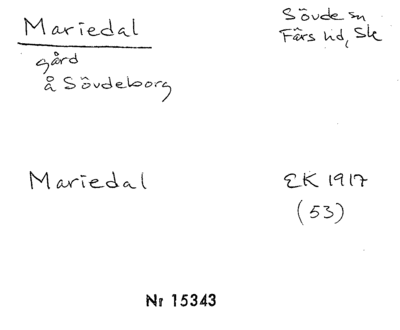 Mariedal
Sövde sn
Färs hd, Sk
gård
å Sövdeborg
Mariedal
EK 1917
(53)
Nr 15343